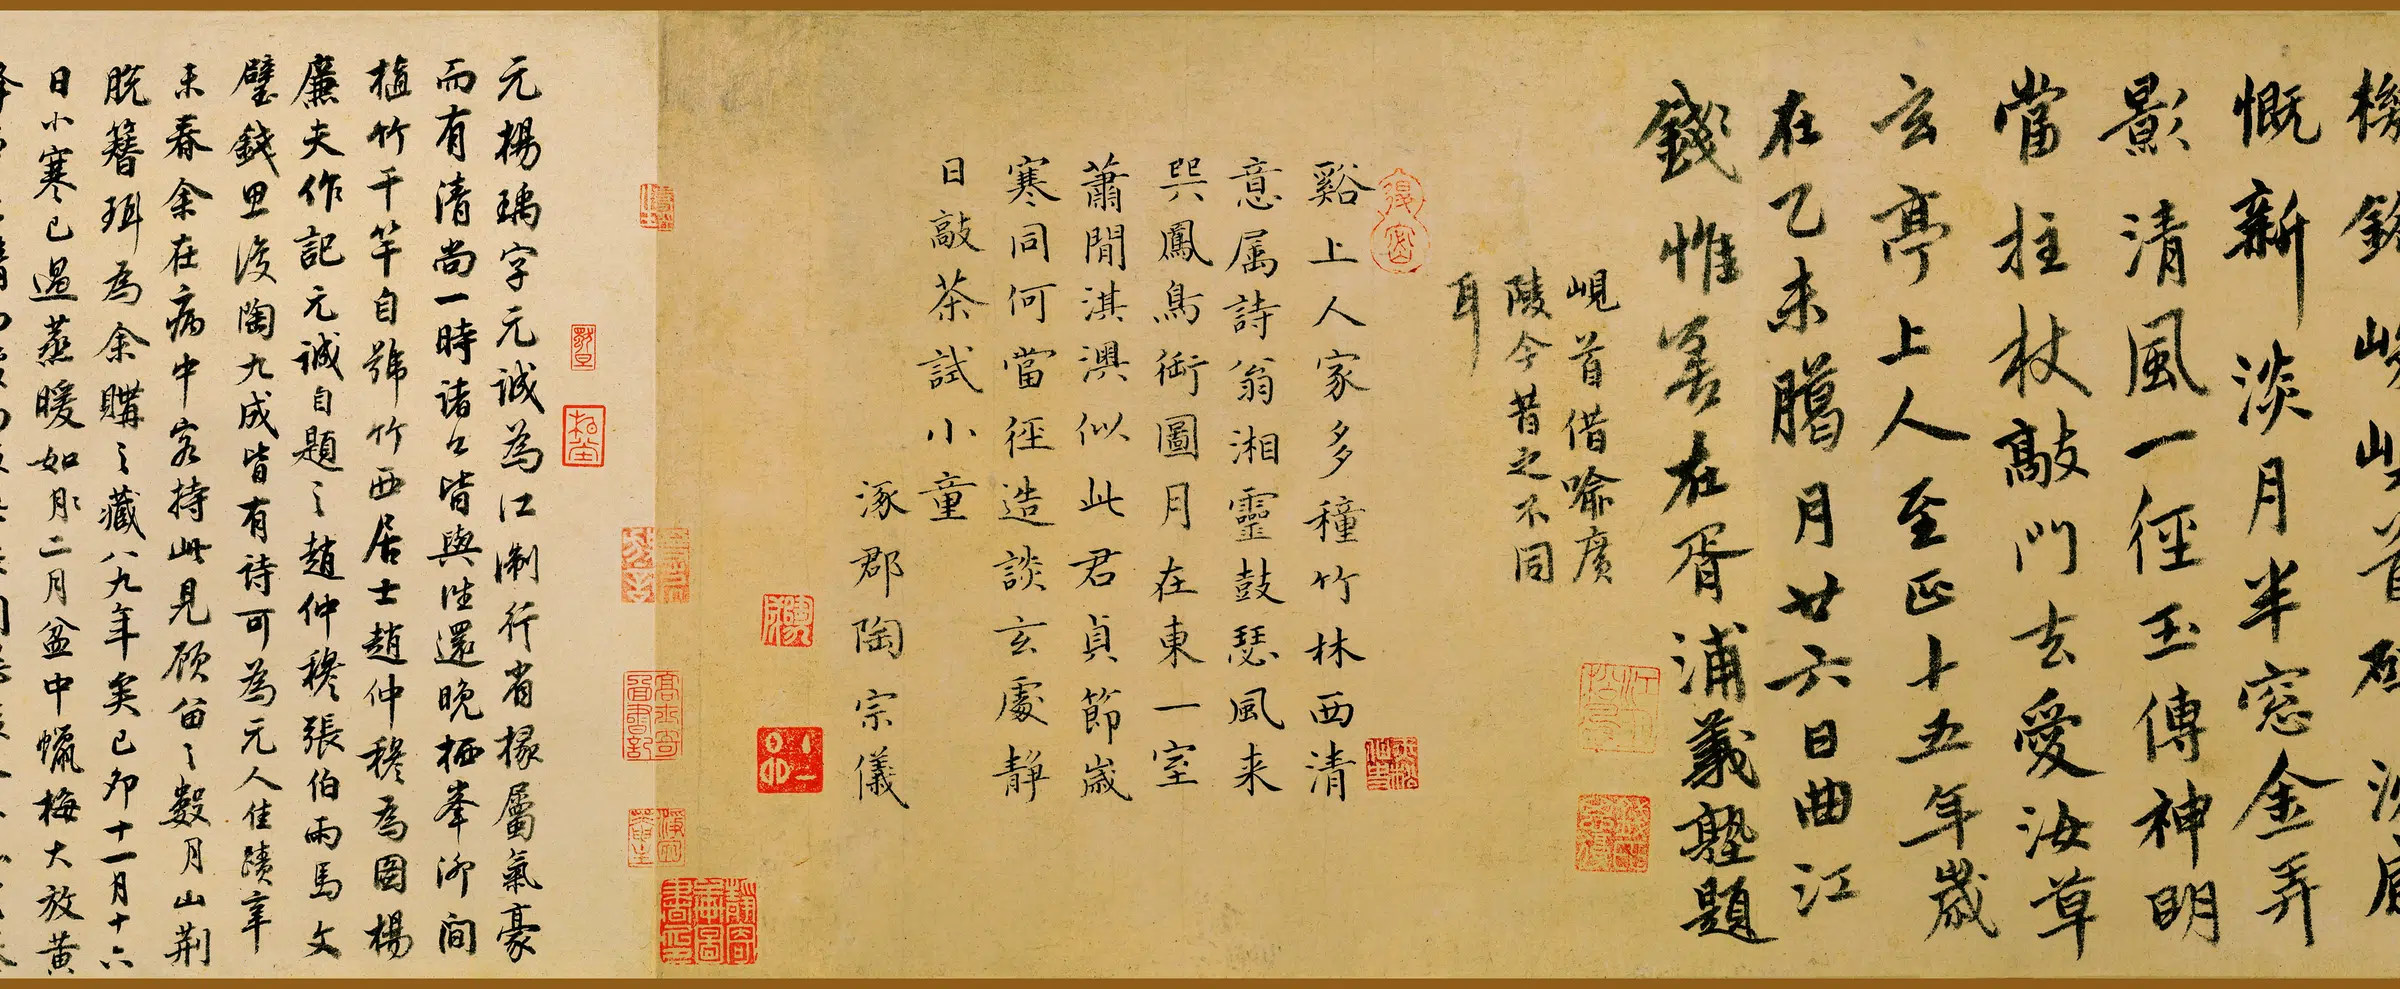 慨新淡月半窓金弄
影清風一徑玉傳神明
當拄杖敲門去愛汝草
玄亭上人至正十五年歲
在乙未臘月廿六日曲江
錢惟善在胥浦義塾題
峴首借喻廣
陵今昔之不同
耳
谿上人家多種竹林西清
意属詩翁湘靈鼓瑟風来
巽鳳鳥銜圖月在東一室
蕭閒淇澳似此君貞節歳
寒同何當徑造談玄處靜
日敲茶試小童
涿郡陶宗儀
元楊瑀字元誠為江淛行省掾屬氣豪
而有清尚一時諸公皆與往還晚栖峯泖間
植竹千竿自號竹西居士趙仲穆為圖楊
廉夫作記元誠自題之趙仲穆張伯雨馬文
璧錢思復陶九成皆有詩可為元人佳蹟辛
未春余在病中客持此見顾留之數月山荆
脱簪珥為余購之藏八九年矣己卯十一月十六
日小寒已過蒸暖如月二月盆中蠟梅大放黄